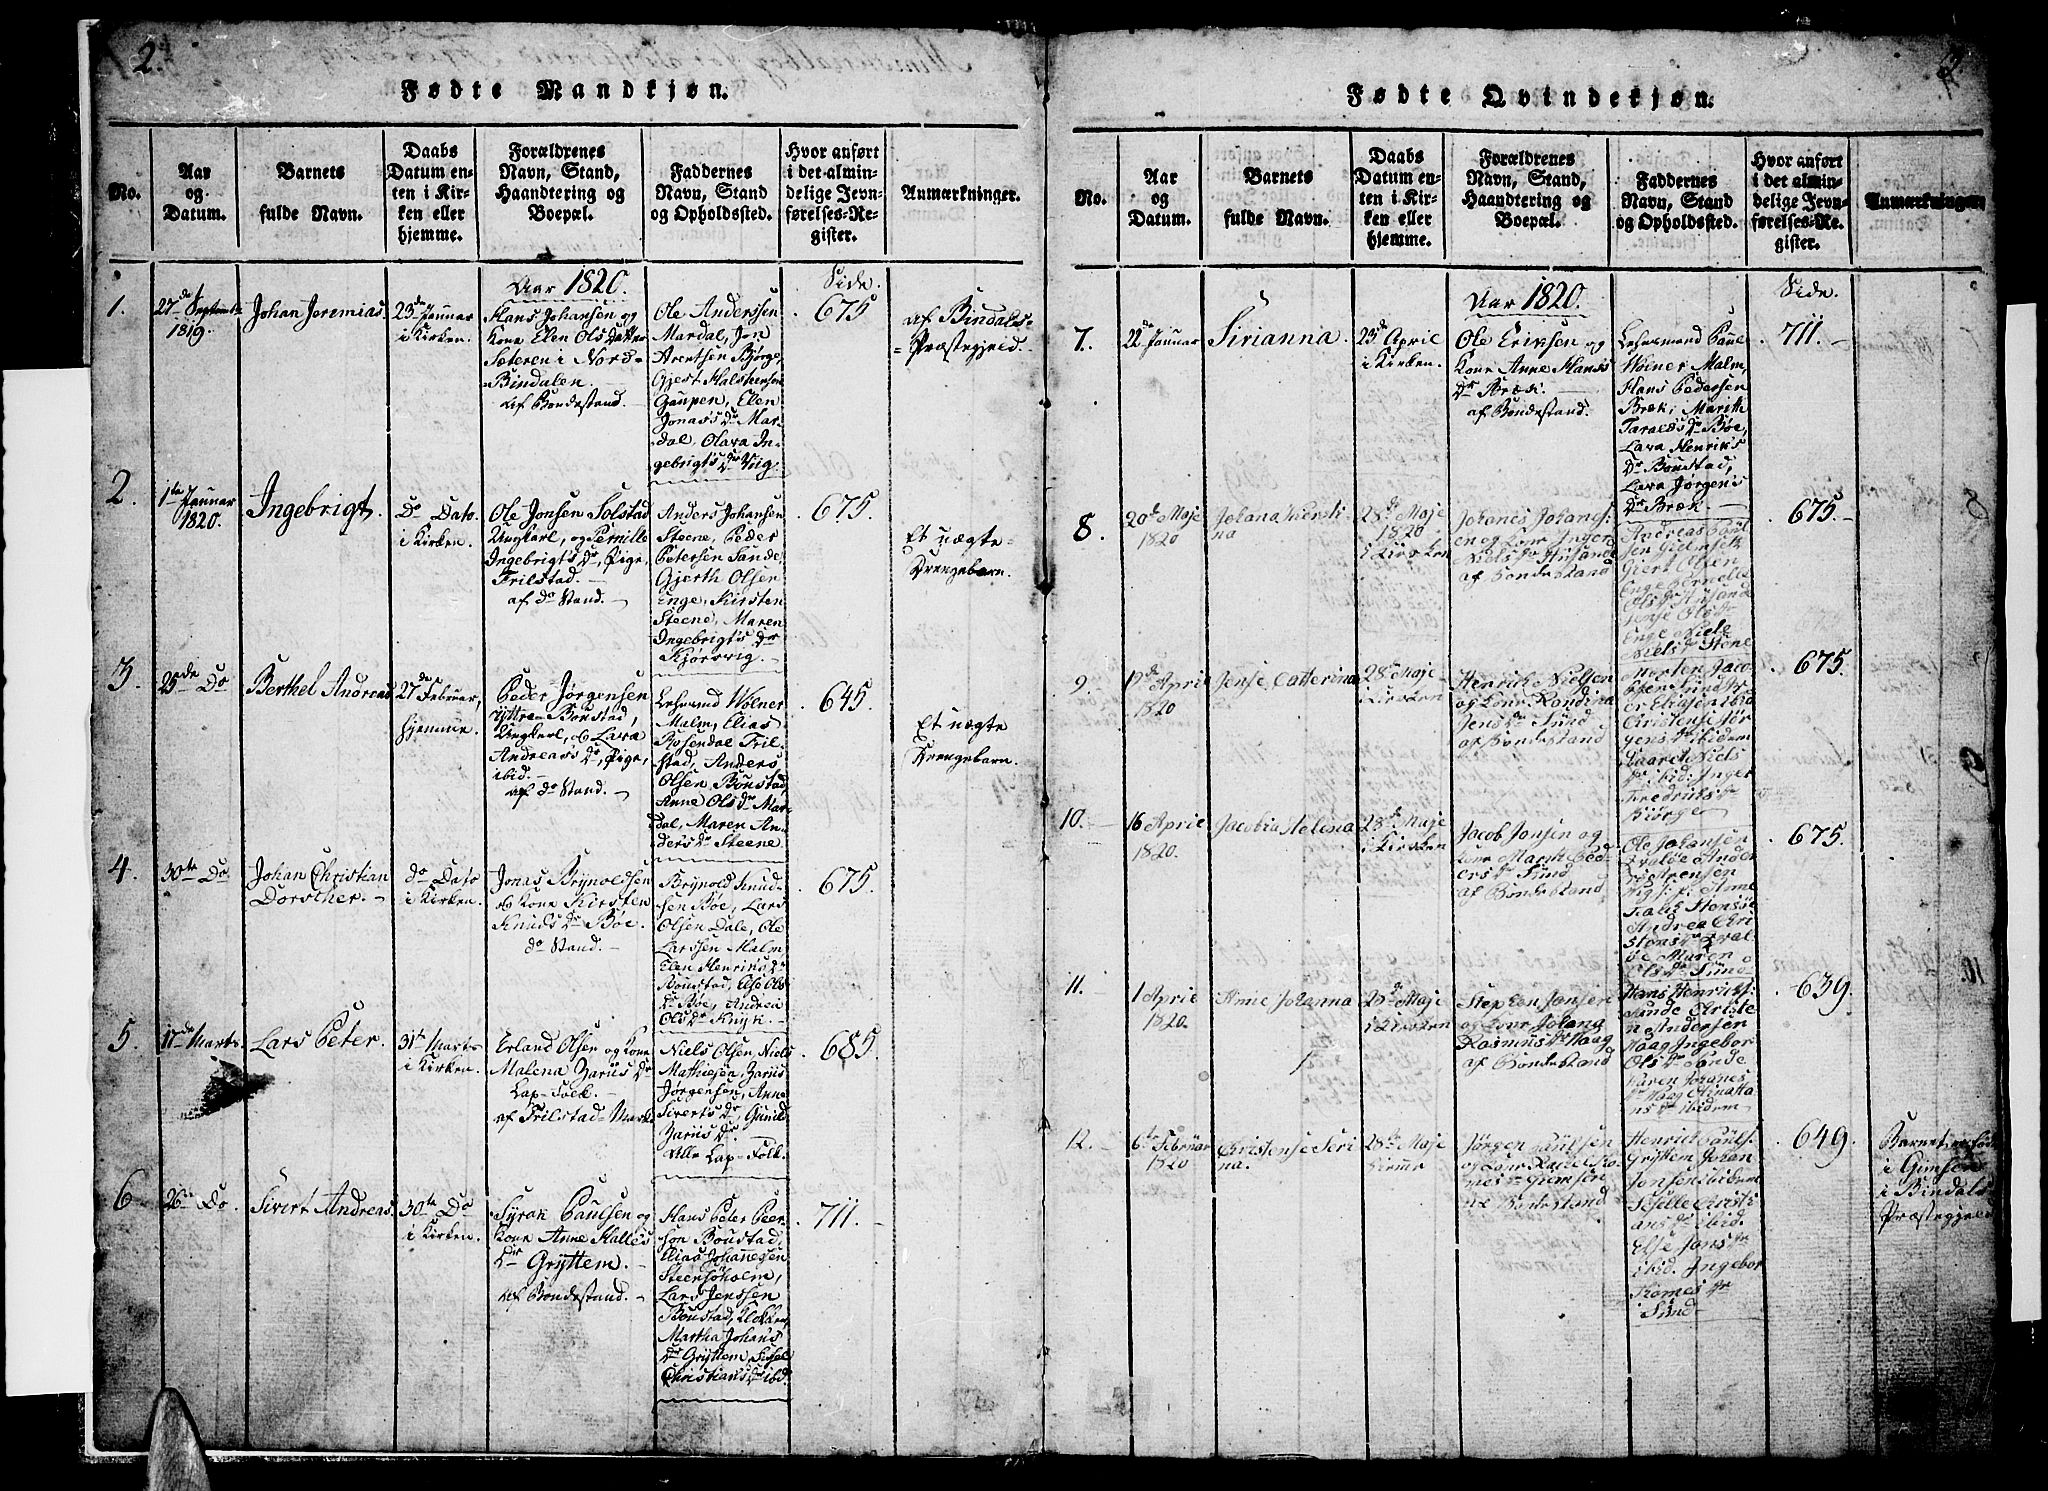 2.
Fødte Mandkjøn.
No.
Aar
og
Datum.
Barnets
fulde Navn.
Daabs
Datum en-
ten i Kir-
ken eller
hjemme.
Forældrenes
Navn, Stand,
Haandtering og
Boepæl.
Faddernes
Navn, Stand
og Opholdssted.
Hvor anført
i det almin-
delige Jevn-
førelses-Re-
gister.
Anmærkninger.
Aar 1820.
Side.
1.
27de Septembr
1819.
Johan Jeremias.
23de Januar
i Kirken.
Hans Johansen og
Kone Elen Olsdatter
Seteren i Nord-
Bindalen.
af Bondestand.
Ole Anderssen
Mardal, Jon
Arentsen Bjørge,
Gjest Halstensen
Gaupen, Elen
Jonas's Dr Mar-
dal, Olava In-
gebrigt's Dr Viig.
675
af Bindals-
Præstegjeld.
2.
1ste Januar
1820.
Ingebrigt.
Do Dato.
i Kirken.
Ole Jonsen Solstad
Ungkarl, og Pernille
Ingebrigt's Dr, Pige,
Frilstad.
af do Stand.
Anders Johansen
Steene, Peder
Petersen Sande,
Gjerth Olsen
Enge, Kirsten
Steene, Maren
Ingebrigt's Dr
Kjørvig.
675.
Et uægte
Drengebarn.
3.
25de Do
Berthel Andreas
27de Februar,
hjemme.
Peder Jørgensen
yttre Boustad,
Ungkarl, & Lava
Andreas's Dr, Pige,
ibid.
af do Stand.
Lehnsmd Wolner
Malm, Elias
Rosendal Fril-
stad, Anders
Olsen Bøustad,
Anne Ols Dr Mar-
dal, Maren An-
ders Dr Steene.
645.
Et uægte
Drengebarn.
4.
30te Do
Johan Christian
Dorscher.
do Dato
i Kirken.
Jonas Brynoldsen
& Kone Kirsten
Knuds Dr Bøe.
do Stand.
Brynold Knud-
sen Bøe, Lars
Olsen Dale, Ole
Larssen Malm,
Elen Henriks Dr
Boustad, Else Ols
Dr Bøe, Andrea
Ols Dr Kniik.
675.
5.
17de Marts.
Lars Peter.
31te Marts
i Kirken.
Erland Olsen og Kone
Malena Zariis Dr
Lap-Folk.
af Frilstad-Mark
Niels Olsen, Niels
Mathiesen, Zariis
Jørgensen, Anne
Siverts Dr, Gunild
Zariis Dr.
Alle Lap-Folk.
685.
6
26de Do.
Sivert Andreas.
30te Do
i Kirken.
Syrak Paulsen og
Kone Anne Halles
Dr Gryttem.
af Bondestand.
Hans Peter Peer-
son Boustad,
Elias Johannesen
Steensøholm,
Lars Jenssen
Boustad, Klokker,
Martha Johans
Dr Gryttem, Sissel
Christians Dr ibid.
711.
2.
Fødte Qvindekjøn.
No.
Aar
og
Datum.
Barnets
fulde Navn.
Daabs
Datum en-
ten i Kir-
ken eller
hjemme.
Forældrenes
Navn, Stand,
Haandtering og
Boepæl.
Faddernes
Navn, Stand
og Opholdssted.
Hvor anført
i det almin-
delige Jevn-
førelses-Re-
gister.
Anmærkninger.
Aar 1820.
Side.
7.
22de Januar
Sirianna.
23de April
i Kirken.
Ole Eriksen og
Kone Anne Hans's
Dr Bræk.
af Bondestand.
Lehnsmand Paul
Wolner Malm,
Hans Pedersen
Bræk, Marith
Taralds Dr Bøe,
Lava Henriks
Dr Boustad,
Lava Jørgens
Dr Bræk.
711.
8.
20de Maje
1820
Johana Kiersti-
na
28de Maje
1820
i Kirken
Johanes Johanes:
en og Kone Inger
Niels Dr
af Bondestand
Andreas Poül-
sen
Giert Olsen
Enge Pernelle
Ols Dr
Jense Ols Dr
Enge
Niels Dr Stene
675.
9.
19de April
1820
Jense Catterina
28de Maje
i Kirken
Henrich Nielsen
og Kone Randina
Jens Dr Sund
af Bondestand
Morten Jaco-
bsen Sund

Christense Jør-
gens Dr ibidem
Maaret Niels
Dr ibid: Inger
Fredriks Dr
Biørge
675.
10.
16 April
1820.
Jacobia Helena
28de Maje
i Kirken
Jacob Jonsen og
Kone Marith Ped-
ers Dr Sund
af Bondestand
Ole Johansen
Qvaløe Ander

Falch Stensøe
Andrea Chri-
stens Dr Qval-
øe Maren
Ols Dr Sund
675.
11.
1 April
1820.
Anne Johanna
28de Maje
i Kirken
Stephen Jonsen
og Kone Johana
Rasmus Dr Haag
af Bondestand
Hans Henrichs:
Sande Christe
n Andersen
Haag Ingebor
Ols Dr Sande
Karen Johanes
Dr Haag
ans Dr ibidem
639.
12.
6te Februar
1820
Christense Seri
na.
28de Maje
Jørgen Paülsen
og Kone

af Bondestand
Henrich Paüls:
Gryttem Johan
Jonsen ibidem
Sicelle Christi
ans Dr ibid.
Else Jans Dr
ibid. Ingebor
Tomes Dr
Sünd
649.
Barnet er født
i Gimsen
i Bindals
Præstegjeld